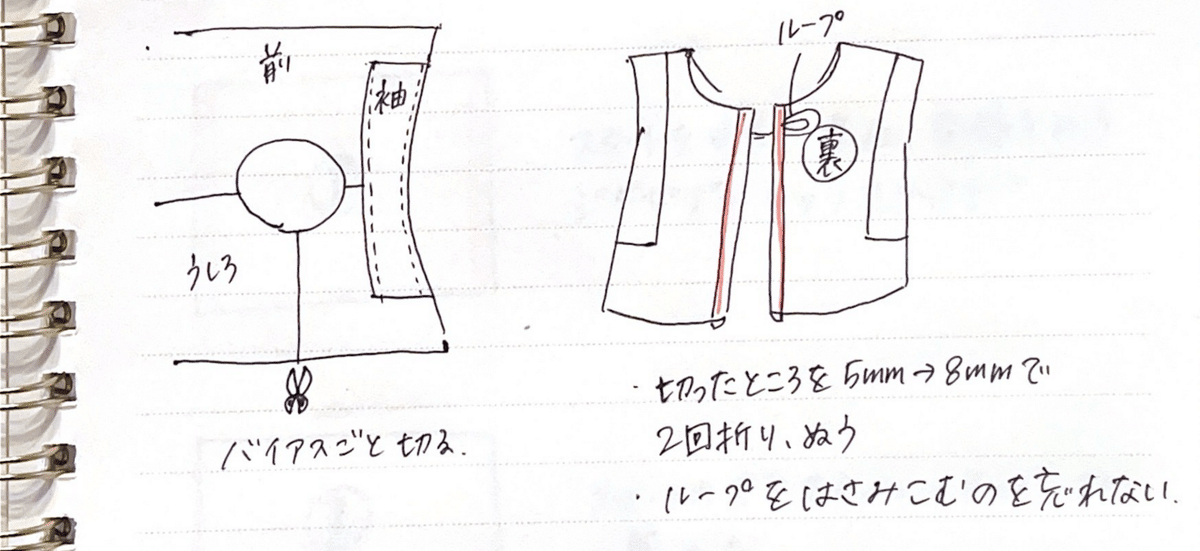 前
袖
うしろ
バイアスごと切る.
ループ
裏
・切ったところを5mm→8mmで
2回折り、ぬう
・ループをはさみこむのを忘れない.